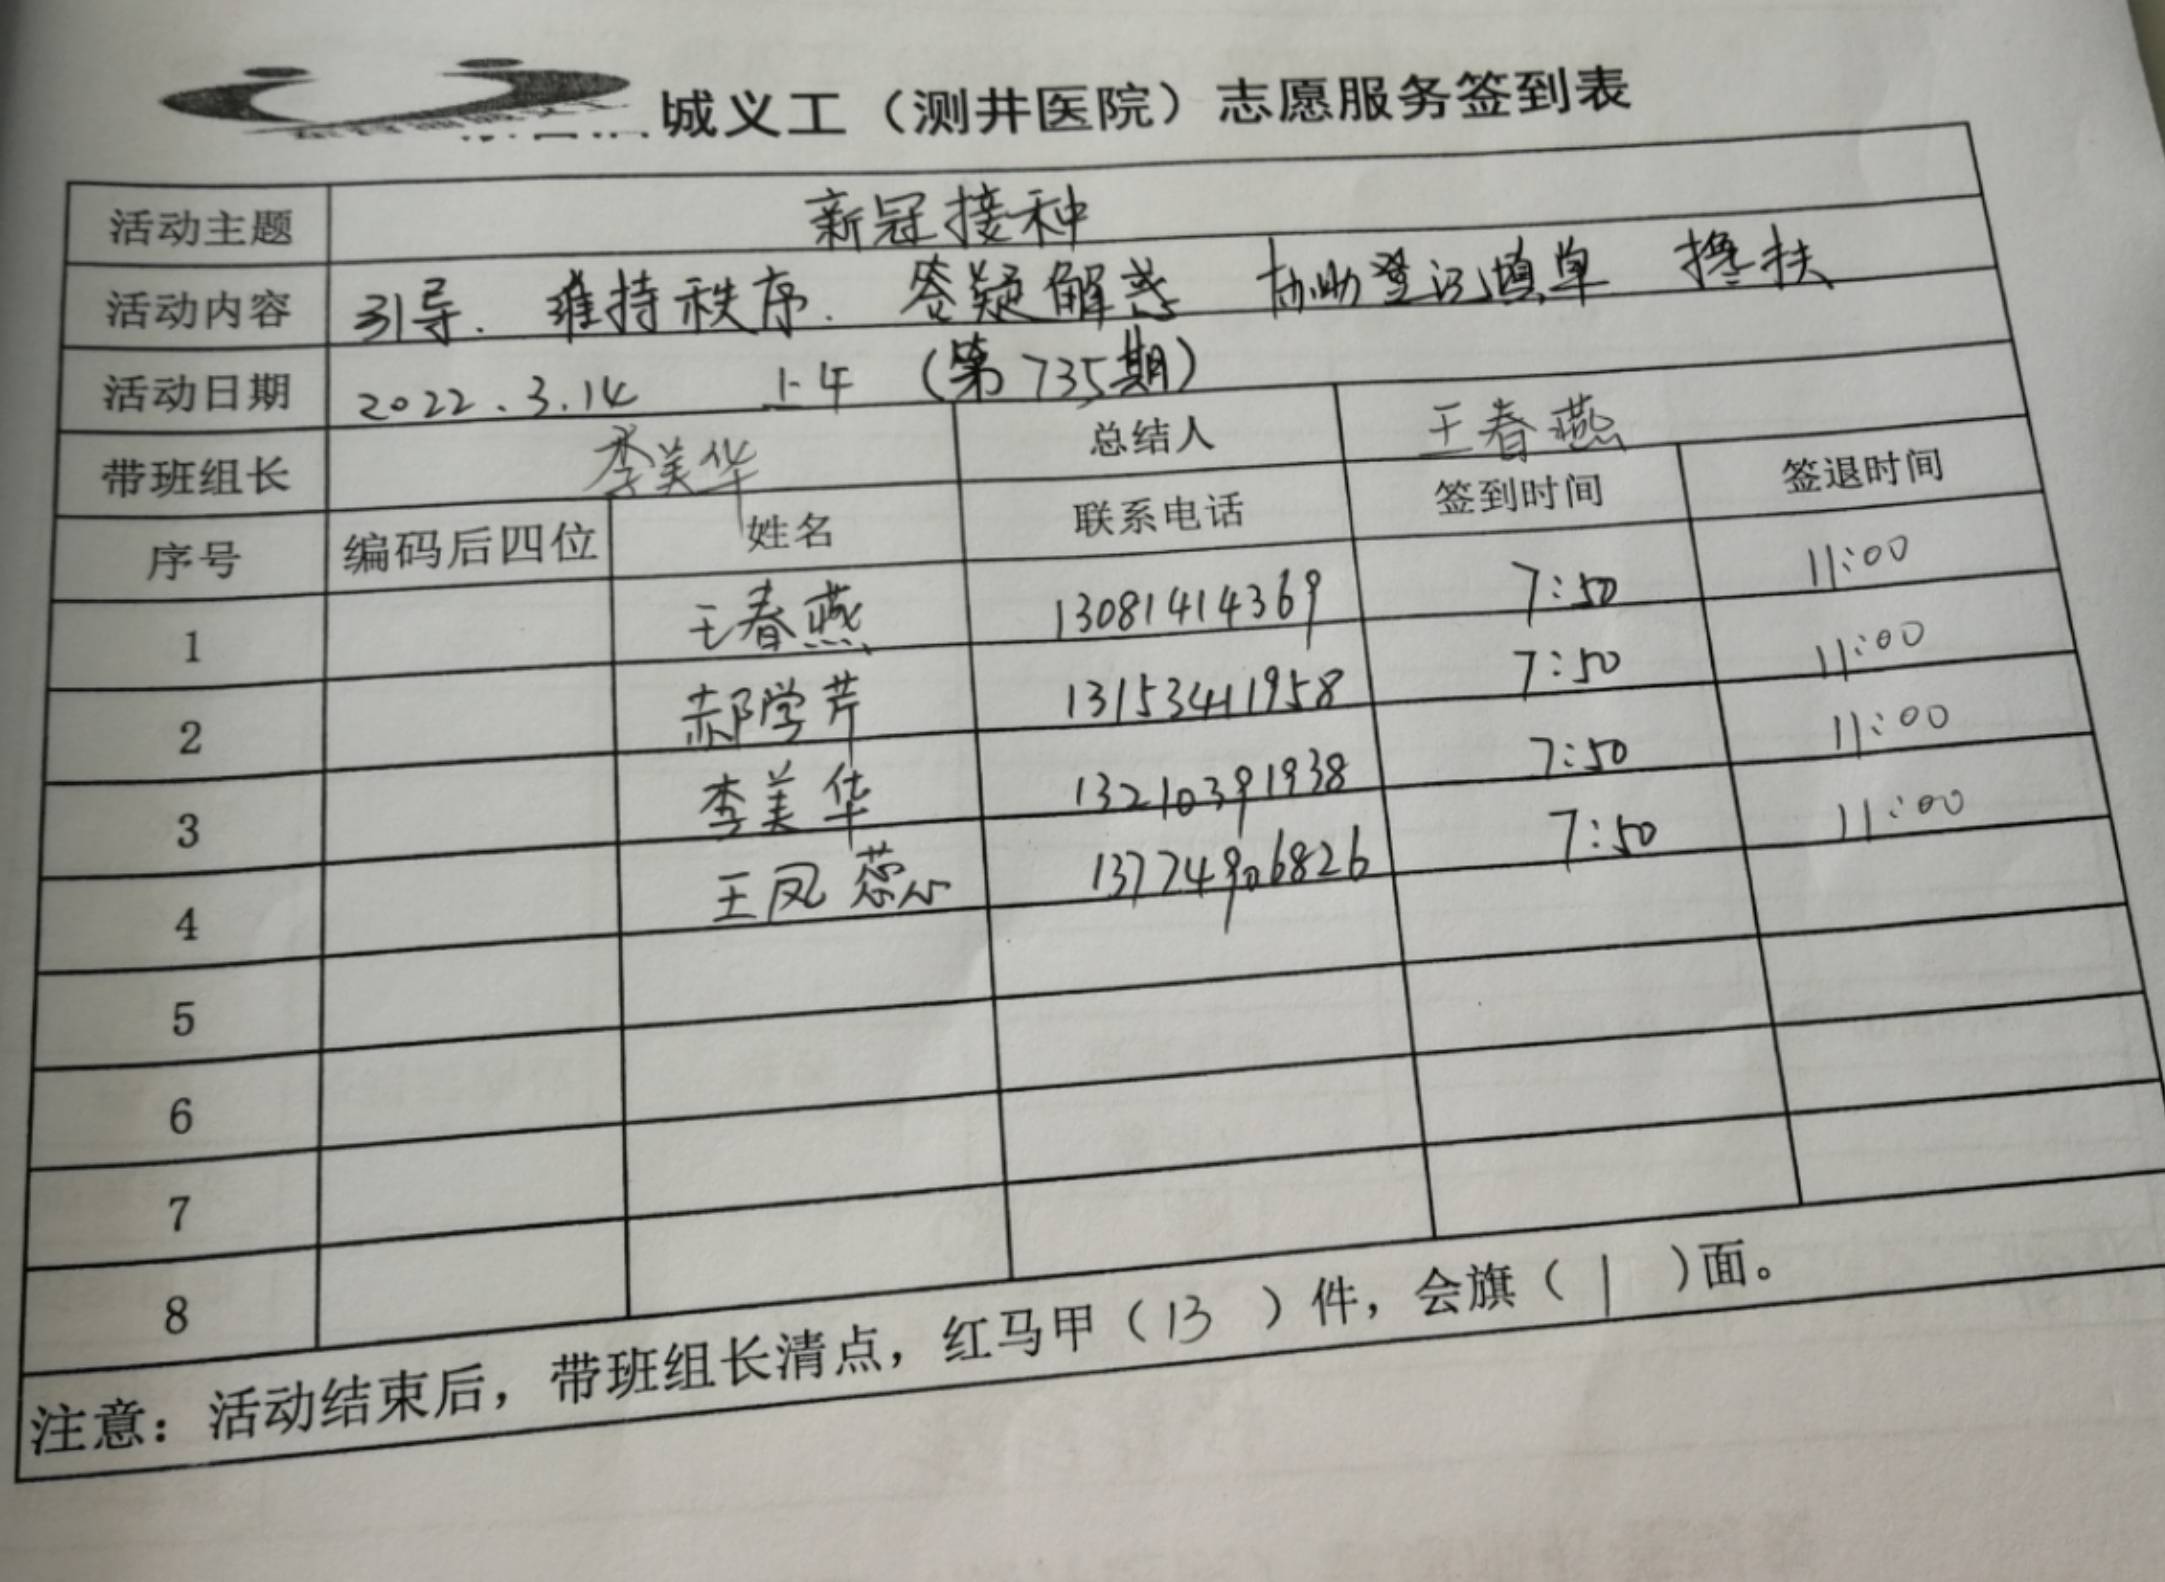 城义工（测井医院）志愿服务签到表
活动主题 新冠接种
活动内容 引导. 维持秩序. 答疑解惑 协助登记填单 搀扶
活动日期 2022.3.14 上午 (第735期)
带班组长 李美华 总结人 王春燕
序号 编码后四位 姓名 联系电话 签到时间 签退时间
1 王春燕 13081414369 7:50 11:00
2 郝学芹 13153411958 7:50 11:00
3 李美华 13210391938 7:50 11:00
4 王凤蕊 13774906826 7:50 11:00
5
6
7
8
注意：活动结束后，带班组长清点，红马甲（13）件，会旗（1）面。